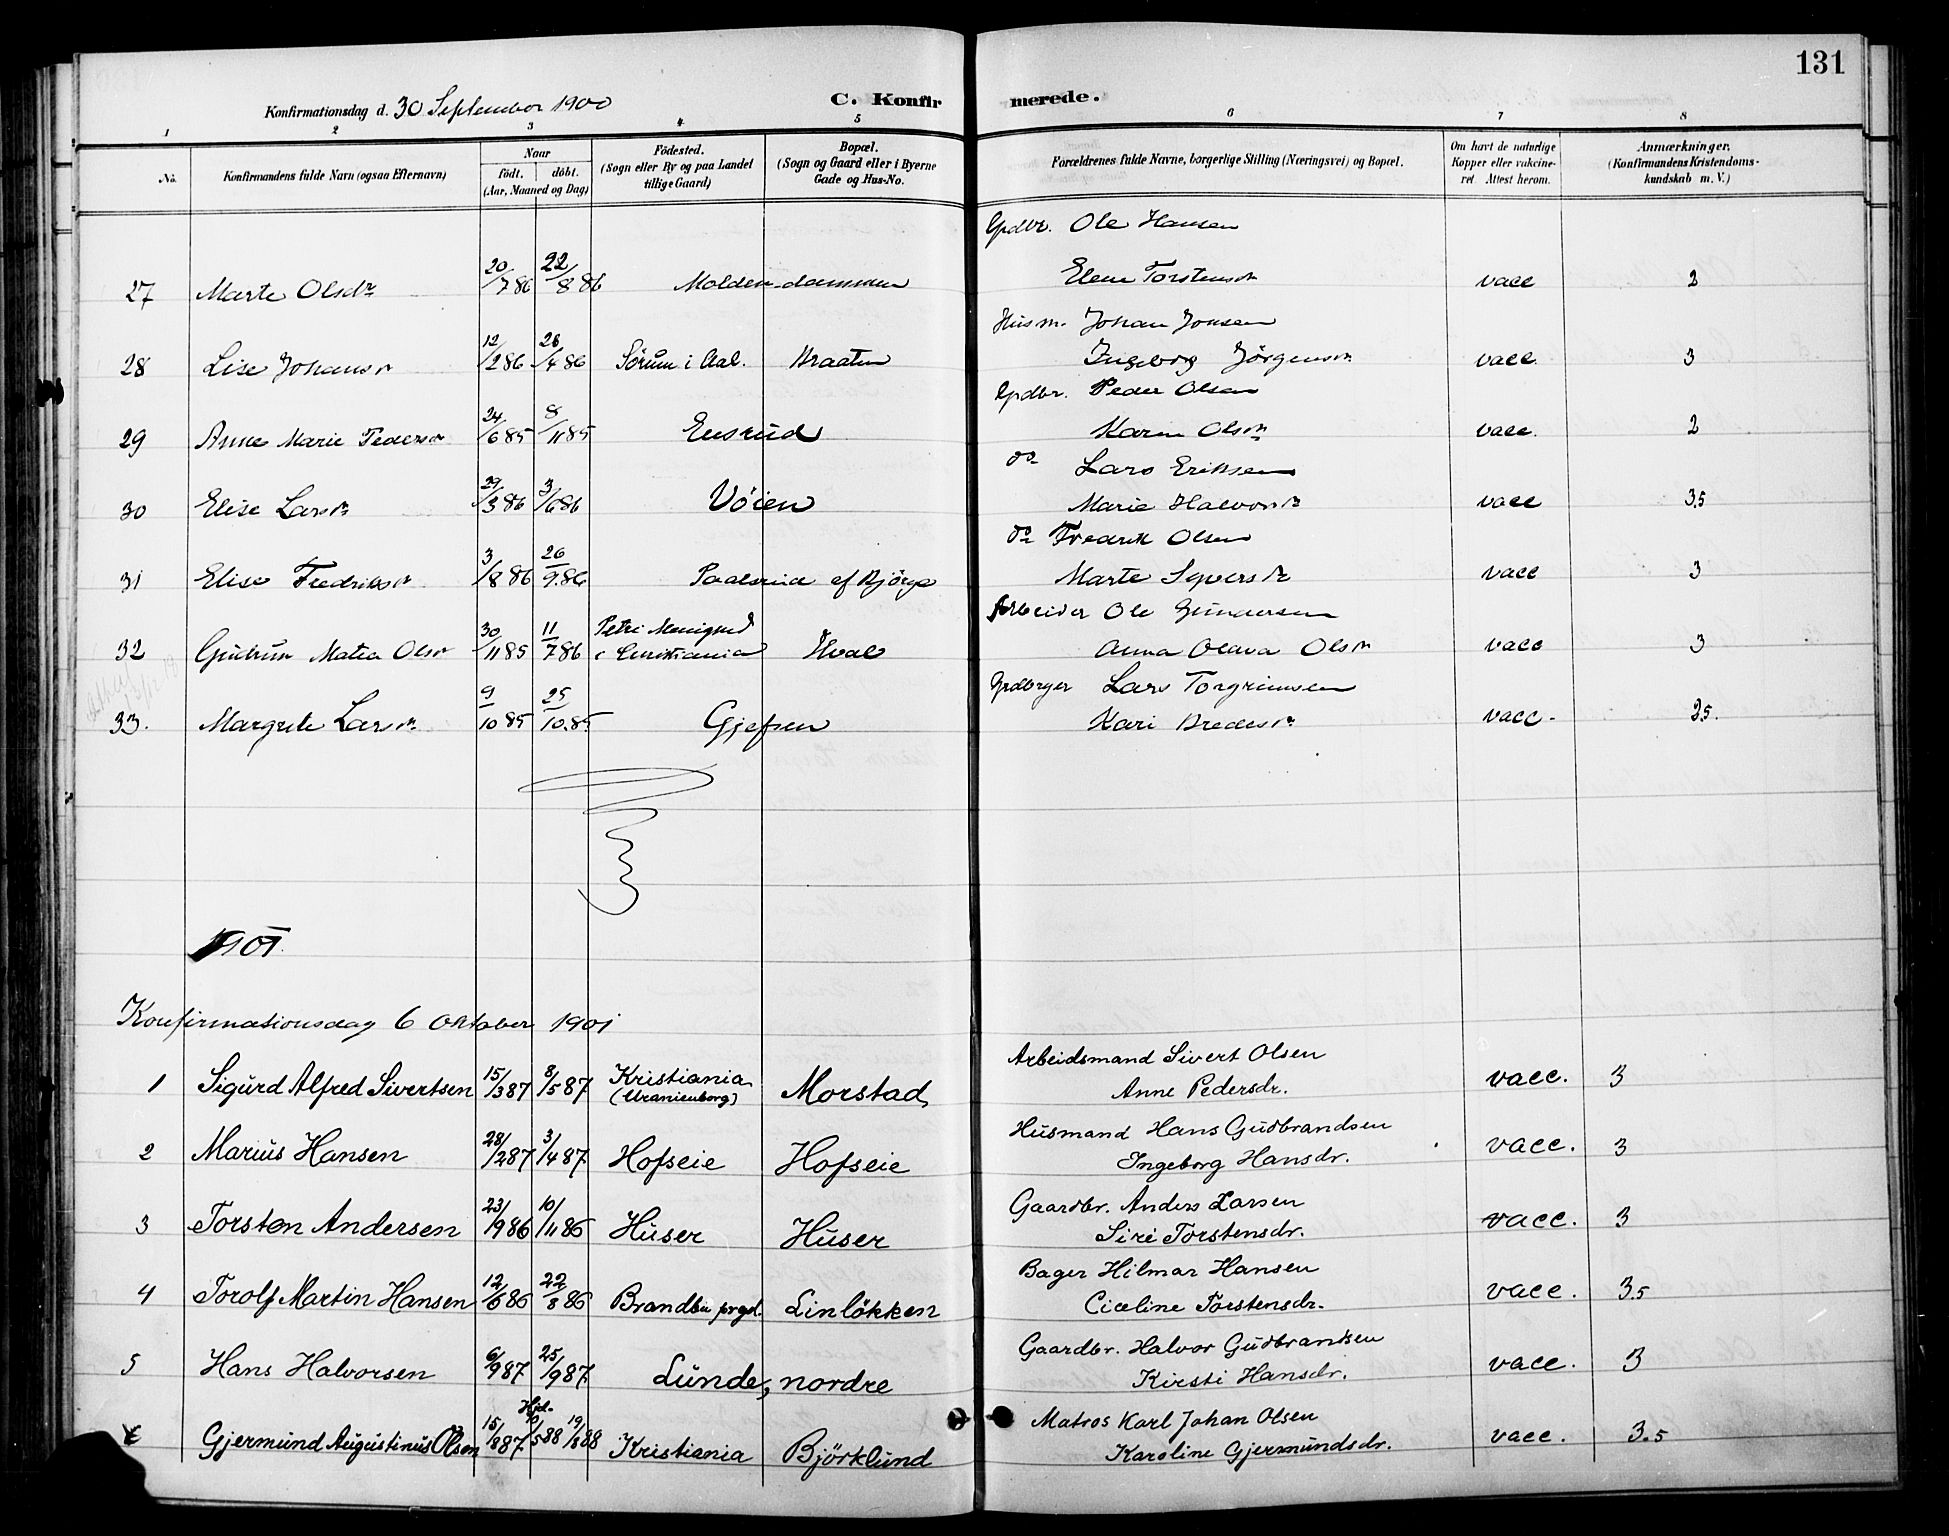 131
Konfirmationsdag d. 30 September 1900
C. Konfirmerede.
1 2 3 4 5 6 7 8
No. Konfirmandens fulde Navn (ogsaa Efternavn) Naar født. døbt. (Aar, Maaned og Dag) Fødested. (Sogn eller By og paa Landet tillige Gaard) Bopæl. (Sogn og Gaard eller i Byerne Gade og Hus-No. Forældrenes fulde Navne, borgerlige Stilling (Næringsvei) og Bopæl. Om havt de naturlige Kopper eller vakcineret. Attest herom. Anmærkninger. (Konfirmandens Kristendomskundskab m. V.)
Gpdbr. Ole Hansen
27 Marte Olsdr 20/7 86 22/8 86 Molden-dammen Elene Torstensdr vacc 2
Husm. Johan Jonsen
28 Lise Johansdr 12/2 86 26/4 86 Sørum i Aal. Braaten Ingeborg Jørgensdr vacc. 3
Gpdbr. Peder Olsen
29 Anne Marie Pedersdr 24/6 85 8/11 85 Ensrud Karen Olsdr vacc. 2
do Lars Eriksen
30 Elise Larsdr 29/3 86 3/6 86 Vøien Marie Halvorsdr vacc 3.5
do Fredrik Olsen
31 Elise Fredriksdr 3/8 86 26/9.86 Paalsrud af Bjørge Marte Syversdr vacc 3
Arbeider Ole Gundersen
32 Gudrun Matea Olsdr 30/11 85 11/7 86 Petri Menighed i Christiania Hval Anna Olava Olsdr vacc 3
Grdbryer Lars Torgrimsen
33. Margrete Larsdr 9/10 85 25/10.85 Gjefsen Kari Bredesdr vacc. 2.5.
1901.
Konfirmationsdag 6 Oktober 1901
Arbeidsmand Sivert Olsen
1 Sigurd Alfred Sivertsen 15/3 87 8/5 87 Kristiania (Uranienborg) Morstad Anne Pedersdr. vacc. 3
Husmand Hans Gudbrandsen
2 Marius Hansen 28/2 87 3/4 87 Hofseie Hofseie Ingeborg Hansdr. vacc. 3
Gaardbr. Anders Larsen
3 Torsten Andersen 23/9 86 10/11 86 Huser Huser Siri Torstensdr. vacc. 3
Bager Hilmar Hansen
4 Torolf Martin Hansen 12/6 86 22/8 86 Brandbu prgd. Linløkken Ciceline Torstensdr. vacc. 3.5
Gaardbr. Halvor Gudbrandsen
5 Hans Halvorsen 6/9 87 25/9 87 Lunde, nordre Kirsti Hansdr. vacc. 3
Matros Karl Johan Olsen
6 Gjermund Augustinus Olsen 15/8 87 Hjd. 9/5 88 19/8 88 Kristiania Bjørklund Karoline Gjermundsdr. vacc. 3.5